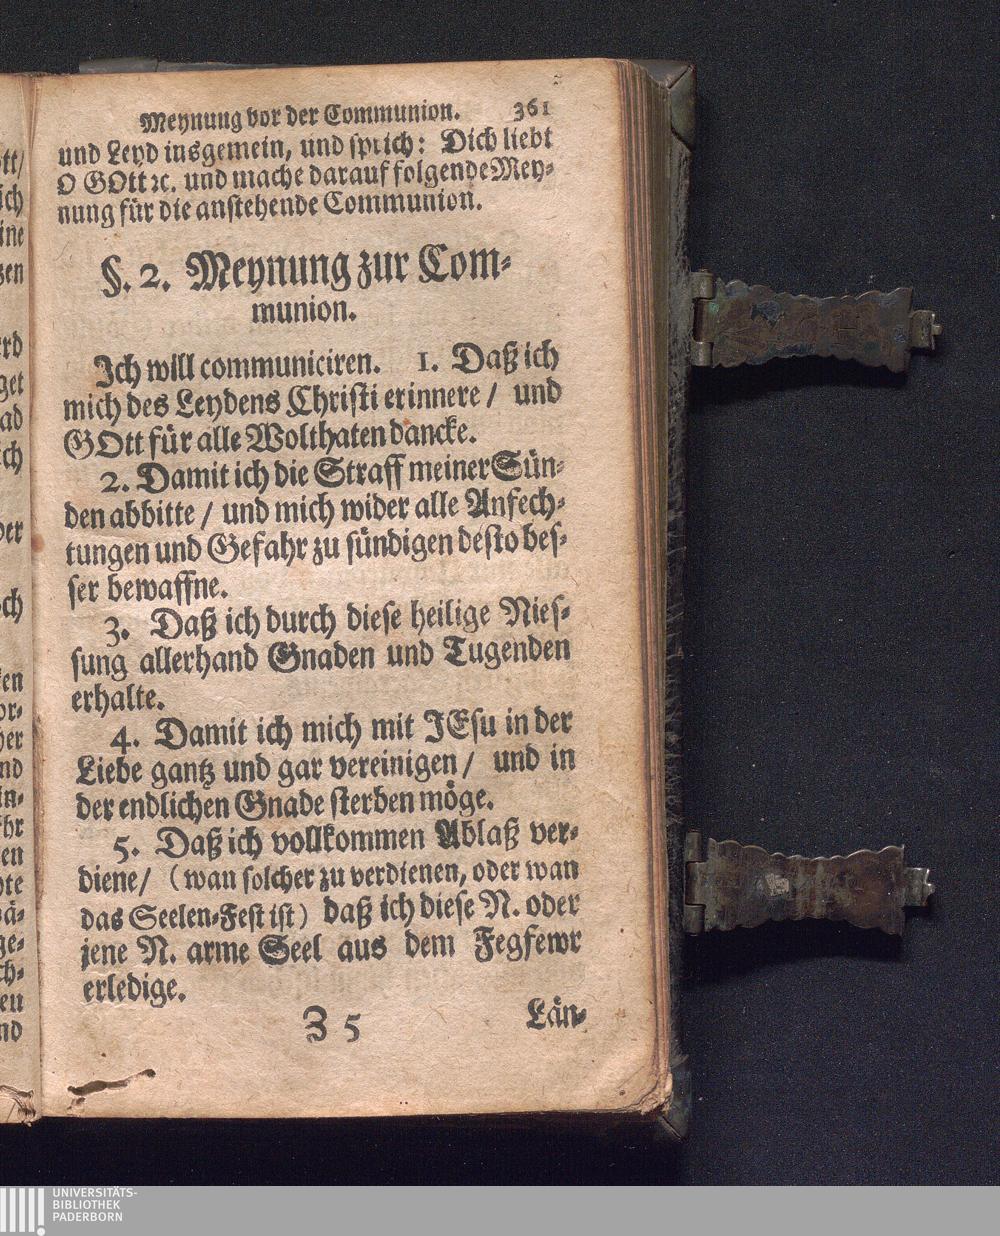 Meynung vor der Communion. 361
und Leyd insgemein, und sprich: Dich liebt
O GOtt ꝛc. und mache darauf folgende Mey-
nung für die anstehende Communion.
§. 2. Meynung zur Com-
munion.
Ich will communiciren. 1. Daß ich
mich des Leydens Christi erinnere / und
GOtt für alle Wolthaten dancke.
2. Damit ich die Straff meiner Sün-
den abbitte / und mich wider alle Anfech-
tungen und Gefahr zu sündigen desto bes-
ser bewaffne.
3. Daß ich durch diese heilige Nies-
sung allerhand Gnaden und Tugenden
erhalte.
4. Damit ich mich mit JEsu in der
Liebe gantz und gar vereinigen / und in
der endlichen Gnade sterben möge.
5. Daß ich vollkommen Ablaß ver-
diene / (wan solcher zu verdienen, oder wan
das Seelen-Fest ist) daß ich diese N. oder
jene N. arme Seel aus dem Fegfewr
erledige.
Z 5 Län-
UNIVERSITÄTS-
BIBLIOTHEK
PADERBORN